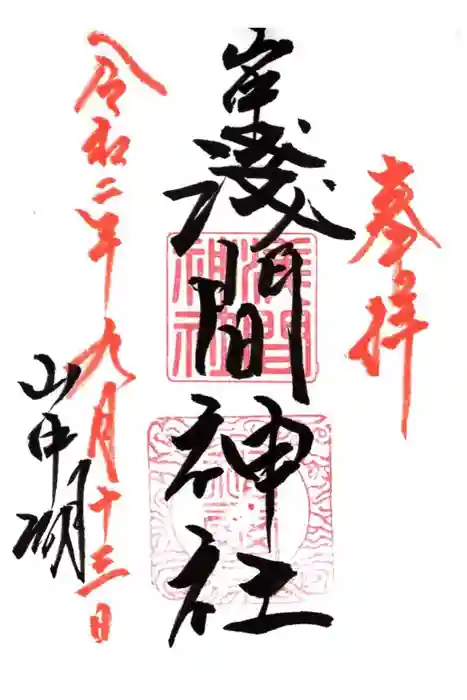 奉拝
山中淺間神社
淺間
神社
令和二年九月十三日
山中湖